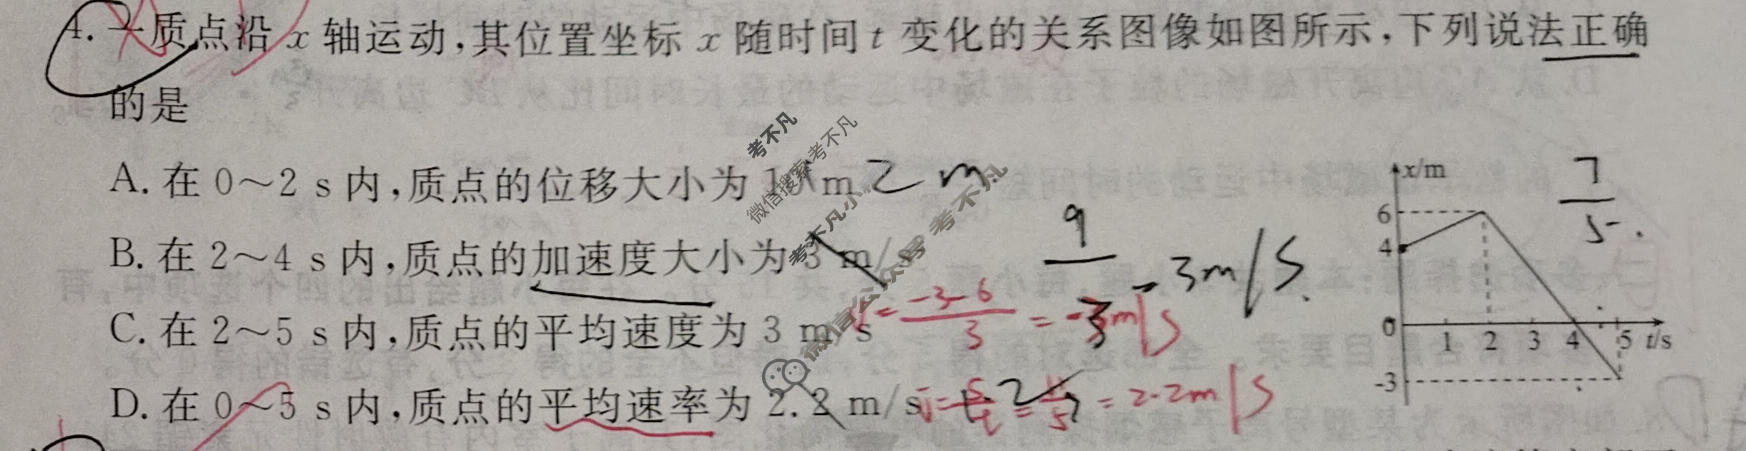 4. 一质点沿 x 轴运动,其位置坐标 x 随时间 t 变化的关系图像如图所示,下列说法正确
的是
A. 在 0~2 s 内,质点的位移大小为 1 m 2 m.
B. 在 2~4 s 内,质点的加速度大小为 3 m/s
C. 在 2~5 s 内,质点的平均速度为 3 m/s
D. 在 0~5 s 内,质点的平均速率为 2.2 m/s
9 3m/S.
-3-6
= 3 = -3m/s
= 2.2m/s
x/m
6
4
0 1 2 3 4 5 t/s
-3
7
5.
考不凡
微信搜索 考不凡
考不凡
微信公众号 考不凡